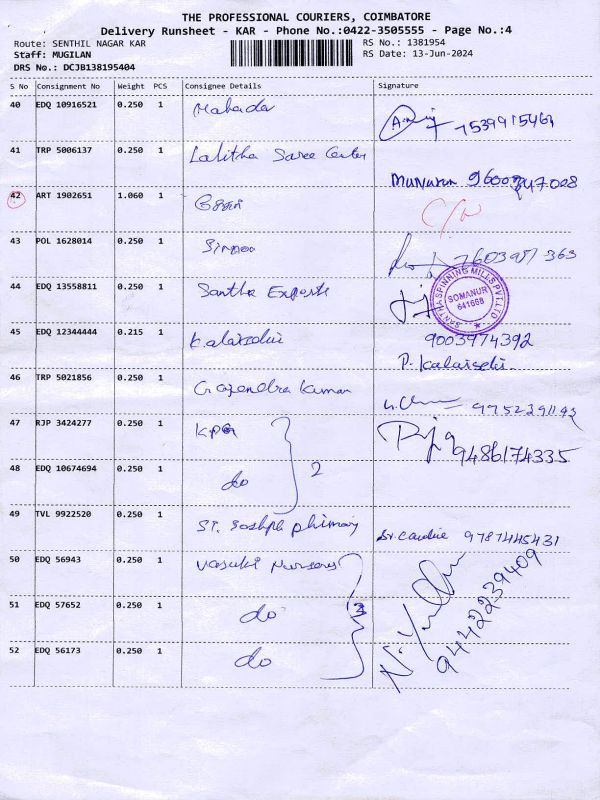 THE PROFESSIONAL COURIERS, COIMBATORE
Delivery Runsheet - KAR - Phone No.:0422-3505555 - Page No.:4
Route: SENTHIL NAGAR KAR
RS No.: 1381954
Staff: MUGILAN
RS Date: 13-Jun-2024
DRS No.: DCJB138195404
S No Consignment No Weight PCS Consignee Details Signature
40 EDQ 10916521 0.250 1 Mahadev
7539915464
41 TRP 5006137 0.250 1 Lalitha Saree Center
42 ART 1902651 1.060 1
43 POL 1628014 0.250 1
7603987363
44 EDQ 13558811 0.250 1 Santha Exports
SANTHA SPINNING MILLS PVT LTD
SOMANUR
641668
45 EDQ 12344444 0.215 1 9003974392
P. Kalaiselvi
46 TRP 5021856 0.250 1 Gajendra Kumar
47 RJP 3424277 0.250 1 KPR
9486174335
48 EDQ 10674694 0.250 1 do 2
49 TVL 9922520 0.250 1 ST. Joshph phimary 9787445431
50 EDQ 56943 0.250 1 Vasuki Nursery
51 EDQ 57652 0.250 1 do 3
9442239409
52 EDQ 56173 0.250 1 do